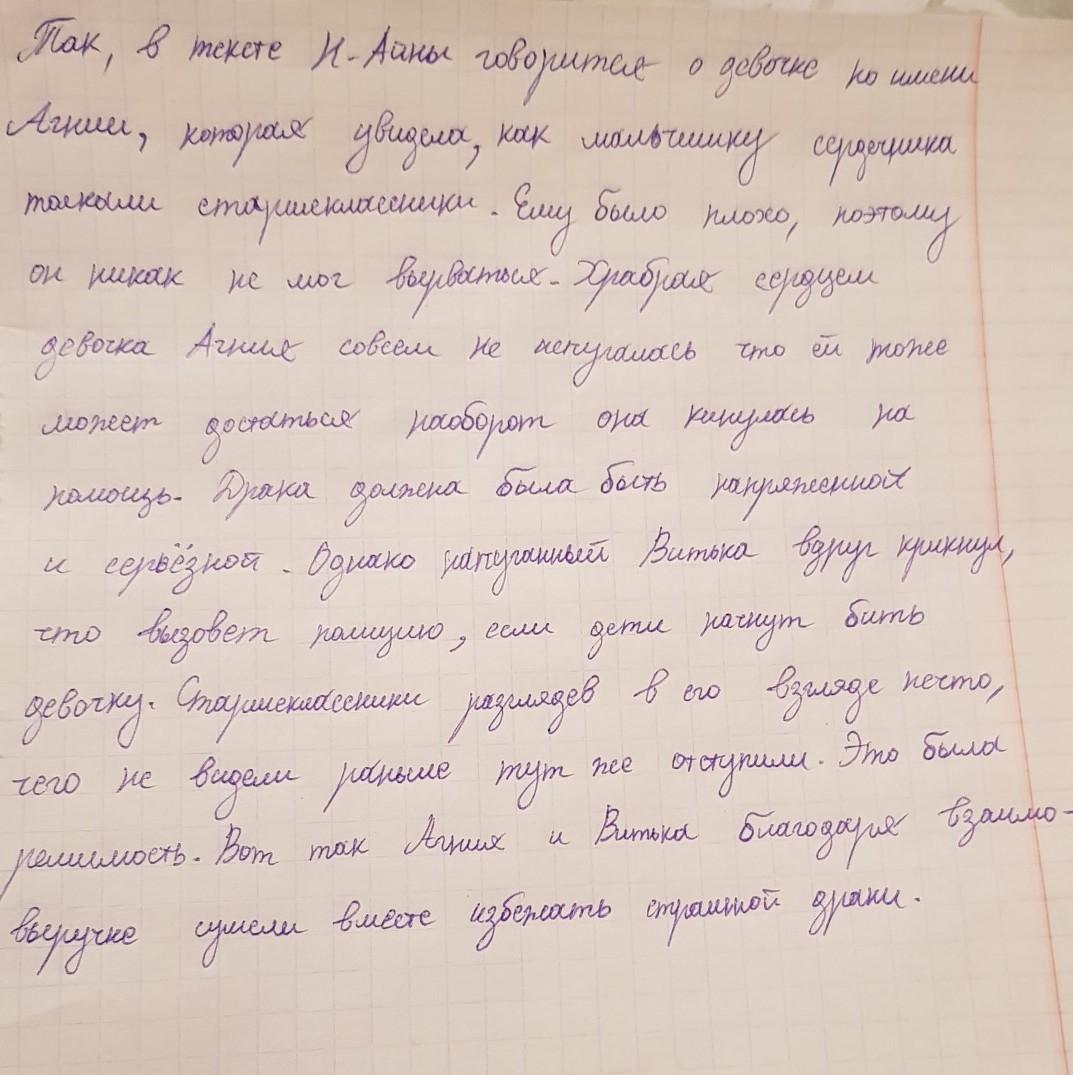 Так, в тексте Н. Айны говорится о девочке по имени
Агнии, которая увидела, как мальчишку сердечника
толкали старшеклассники. Ему было плохо, поэтому
он никак не мог вырваться. Храбрая сердцем
девочка Агния совсем не испугалась что ей тоже
может достаться наоборот она кинулась на
помощь. Драка должна была быть напряженной
и серьёзной. Однако напуганный Витька вдруг крикнул,
что вызовет полицию, если дети начнут бить
девочку. Старшеклассники разглядев в его взгляде нечто,
чего не видели раньше тут же отступили. Это была
решимость. Вот так Агния и Витька благодаря взаимо-
выручке сумели вместе избежать страшной драки.